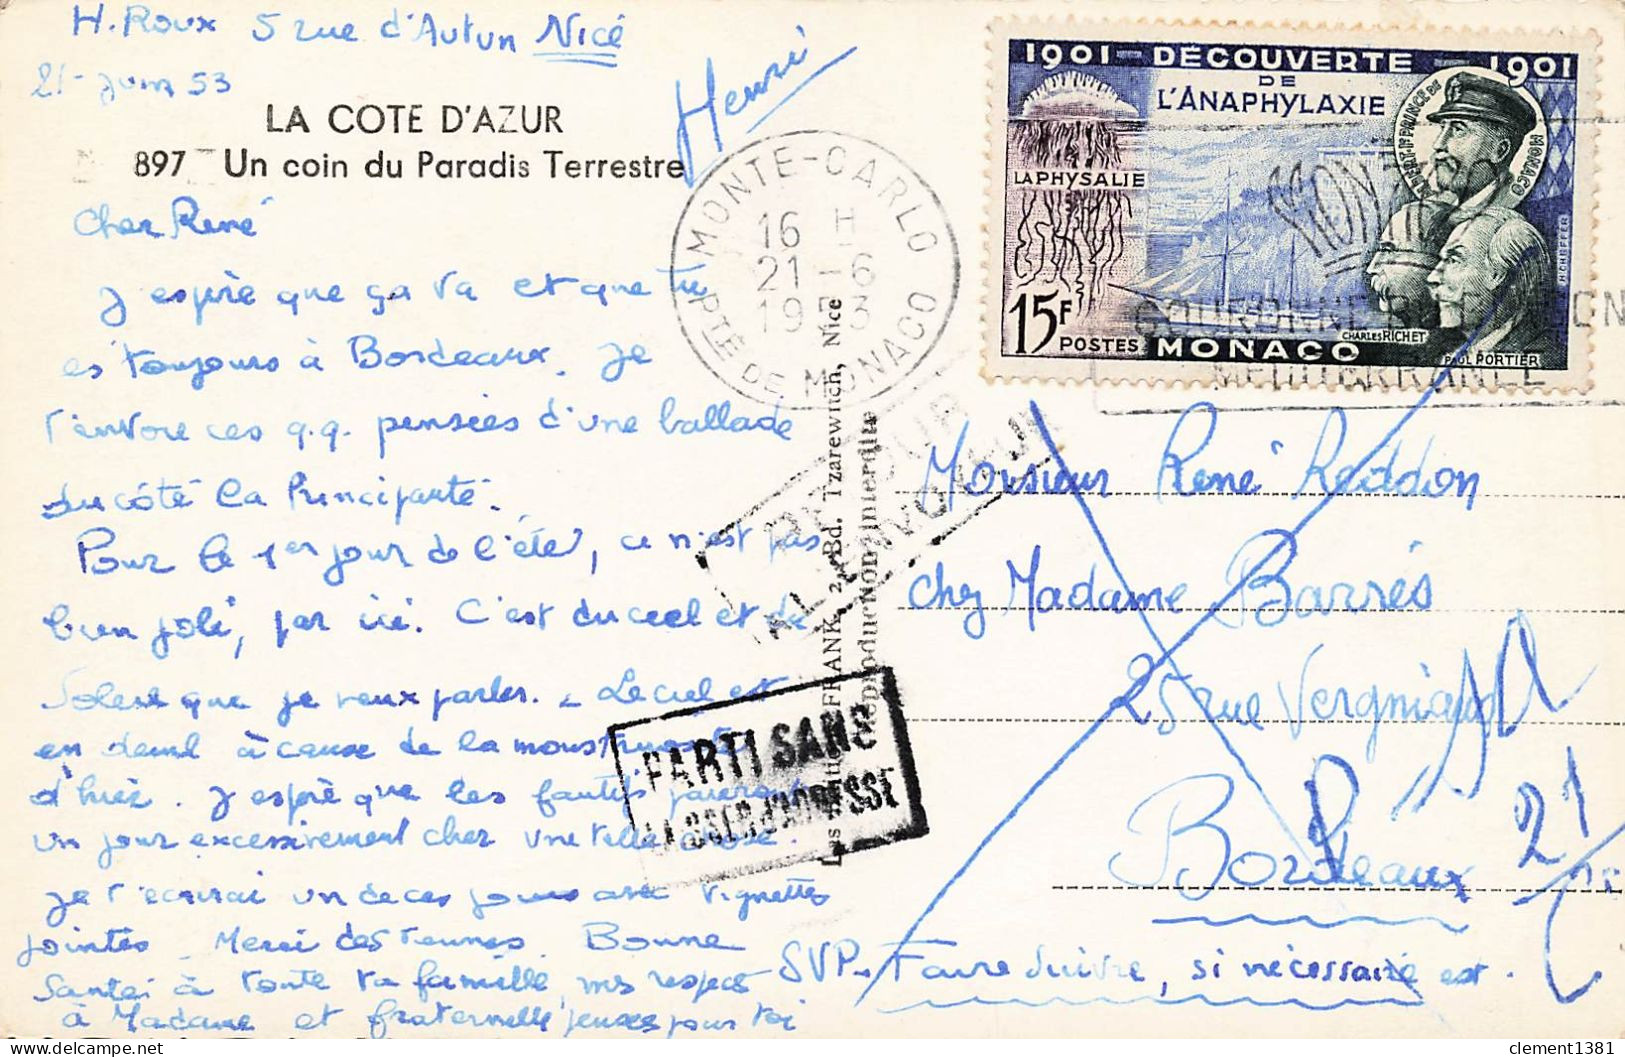 H. Roux 5 rue d'Autun Nice
21 - Juin 53
Henri
LA COTE D'AZUR
897 Un coin du Paradis Terrestre
Cher René
J'espère que ça va et que tu
es toujours à Bordeaux. Je
t'envoie ces q.q. pensées d'une ballade
du côté la Principauté.
Pour le 1er jour de l'été, ce n'est pas
bien joli, par ici. C'est du ciel et du
Soleil que je veux parler. - Le ciel est
en deuil à cause de la
d'hier. J'espère que les fautifs
un jour excessivement cher une telle chose.
Je t'écrirai un de ces jours avec vignettes
jointes. Merci des tiennes. Bonne
Santé à toute ta famille, mes respects
à Madame et fraternelle pour toi
MONTE-CARLO
16 H
21 - 6
19 3
PTÉ DE MONACO
1901 - DÉCOUVERTE - 1901
DE
L'ANAPHYLAXIE
ALBERT Ier PRINCE DE MONACO
LA PHYSALIE
15F
POSTES MONACO
CHARLES RICHET
PAUL PORTIER
MÉDITERRANÉE
RETOUR
A L'ENVOYEUR
PARTI SANS
LAISSER D'ADRESSE
FRANK, 2, Bd. Tzarewitch, Nice
Reproduction interdite
Monsieur René Reddon
chez Madame Barrés
25 rue Vergniaud
Bordeaux
21
SVP. Faire suivre, si nécessaire est.
clement1381